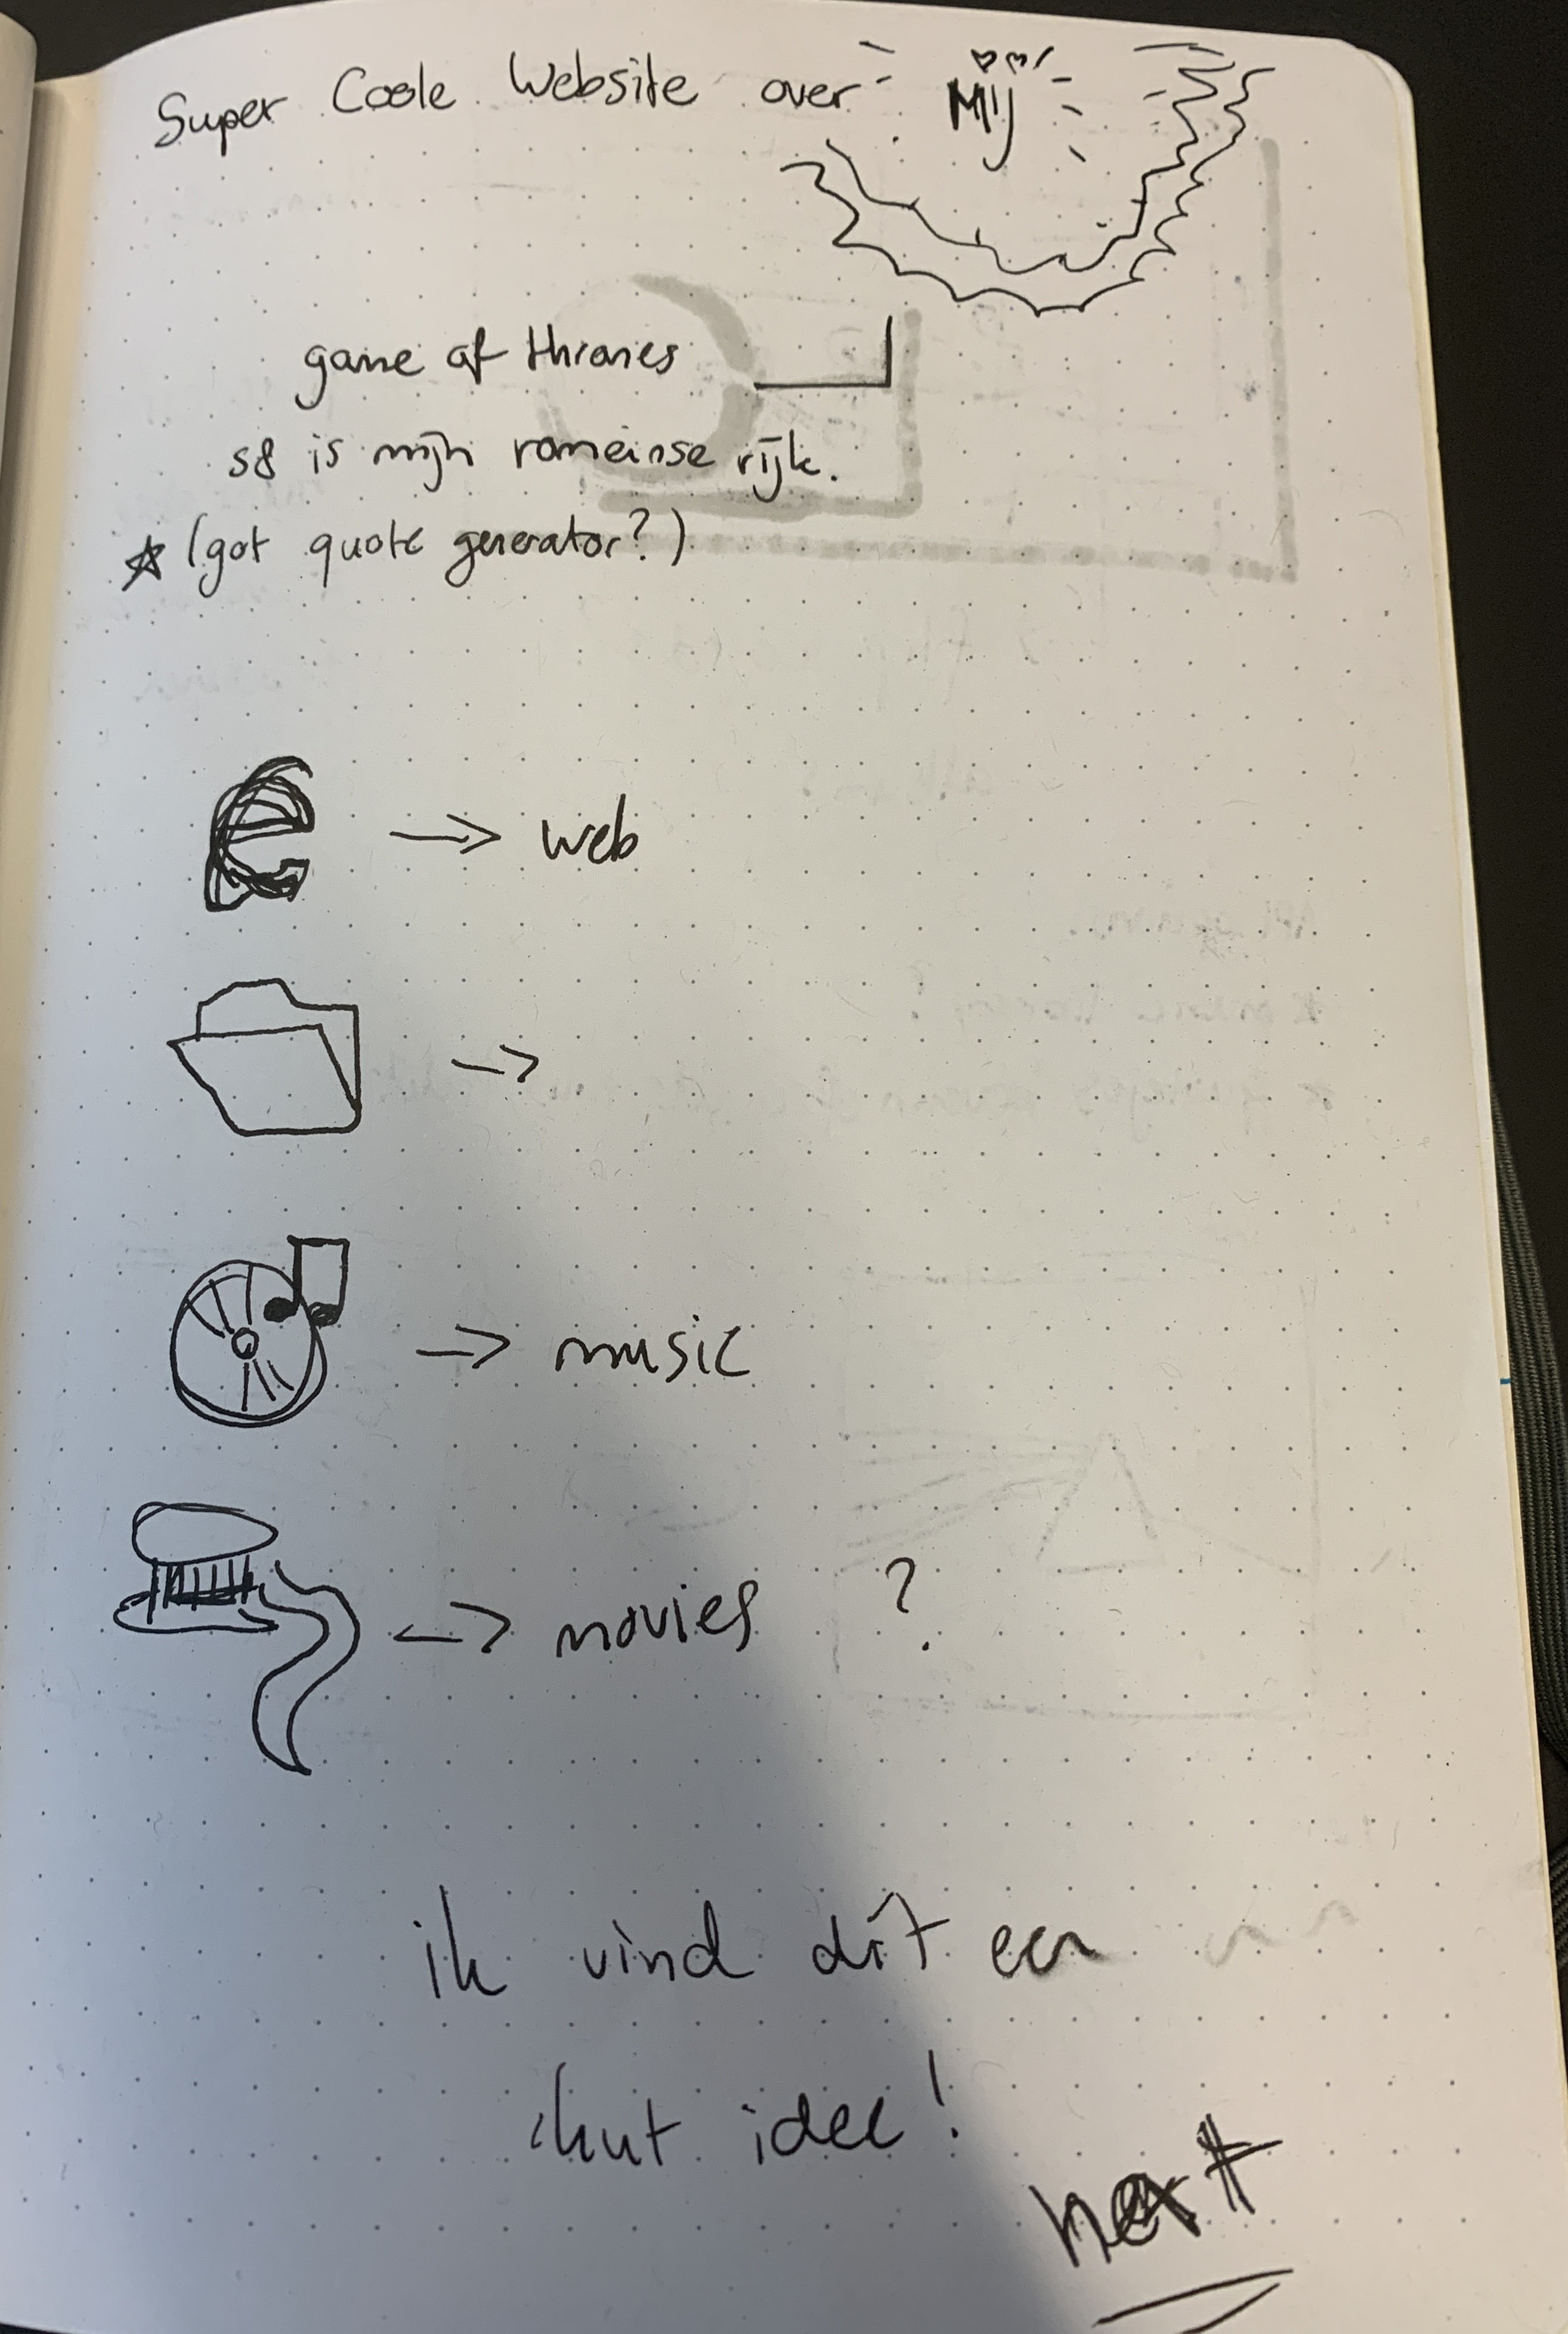 Super Coole Website over MIJ
game of thrones
s8 is mijn romeinse rijk.
(got quote generator?)
e → web
→
→ music
→ movies ?
ik vind dit een
kut idee!
next